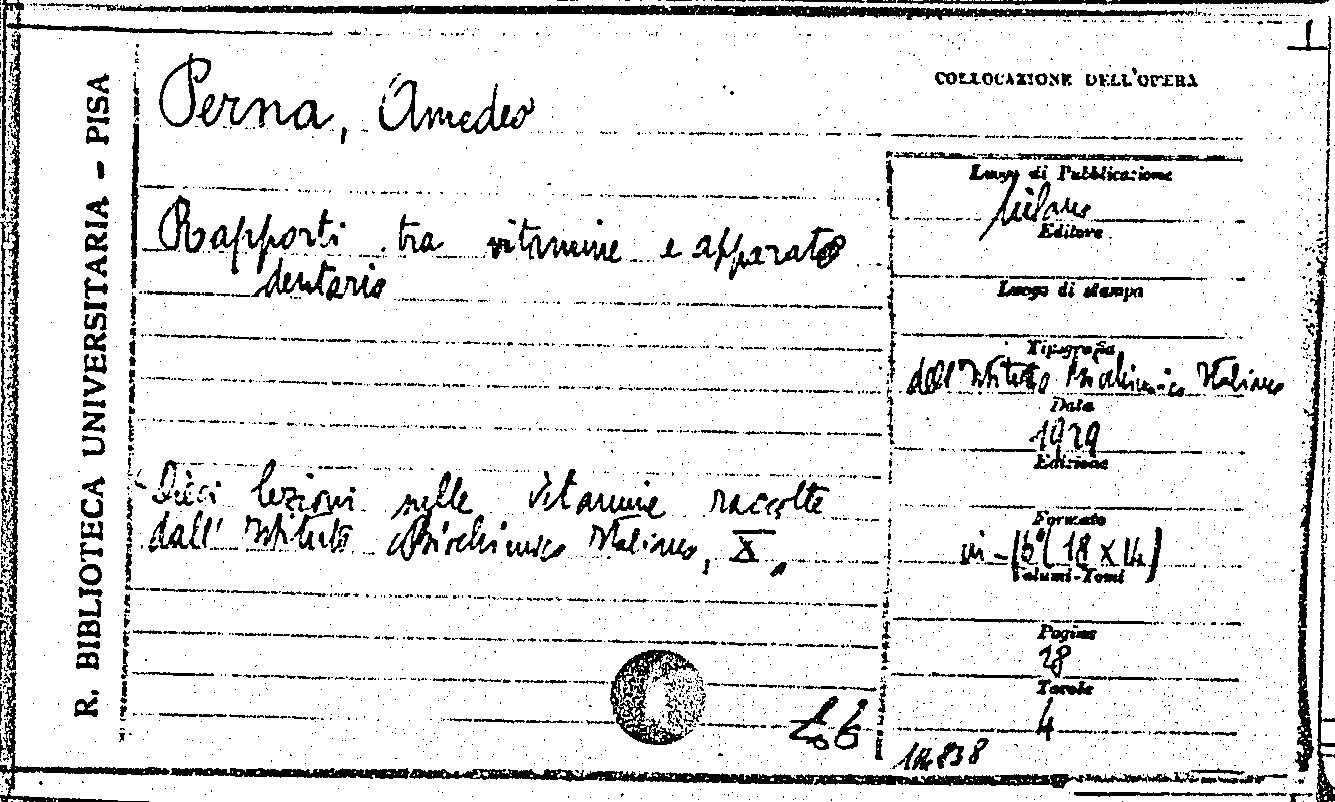 R. BIBLIOTECA UNIVERSITARIA - PISA
Perna, Amedeo
Rapporti tra vitamine e apparato
dentario
Dieci lezioni sulle vitamine raccolte
dall' Istituto Biochimico Italiano, X.
COLLOCAZIONE DELL'OPERA
Luogo di Pubblicazione
Milano
Editore
Luogo di stampa
Tipografia
dell'Istituto Biochimico Italiano
Data
1929
Edizione
Formato
in-16° (18 x 14)
Volumi-Tomi
Pagine
18
Tavole
4
14838